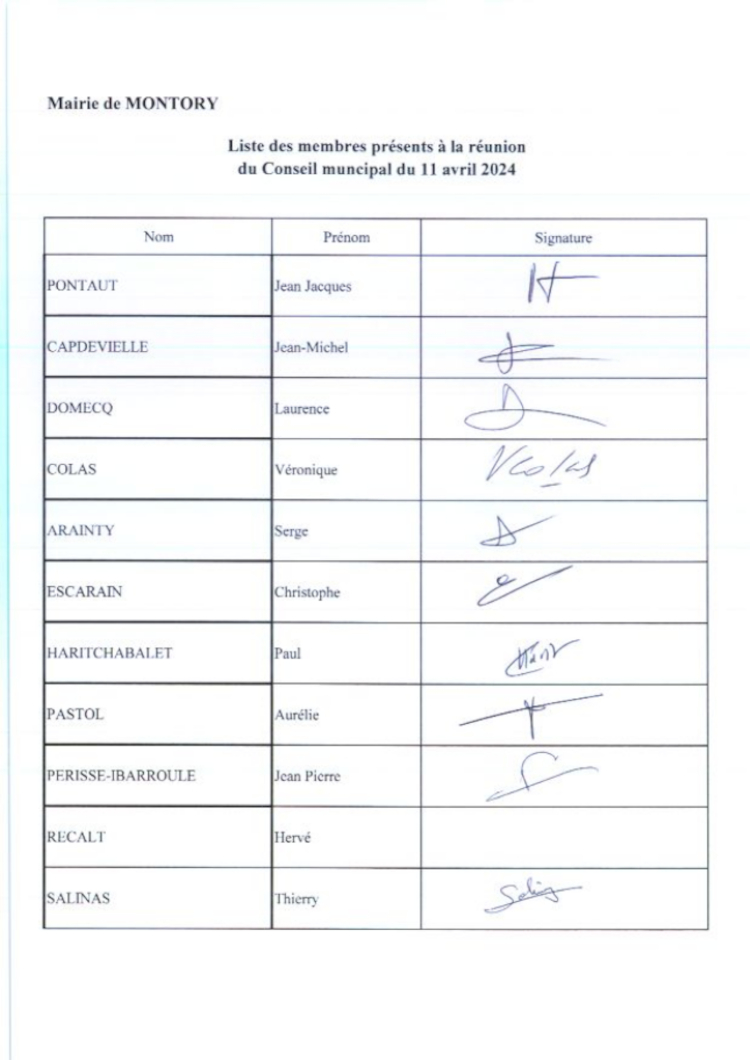 Mairie de MONTORY
Liste des membres présents à la réunion
du Conseil muncipal du 11 avril 2024
Nom Prénom Signature
PONTAUT Jean Jacques
CAPDEVIELLE Jean-Michel
DOMECQ Laurence
COLAS Véronique VColas
ARAINTY Serge
ESCARAIN Christophe
HARITCHABALET Paul
PASTOL Aurélie
PERISSE-IBARROULE Jean Pierre
RECALT Hervé
SALINAS Thierry